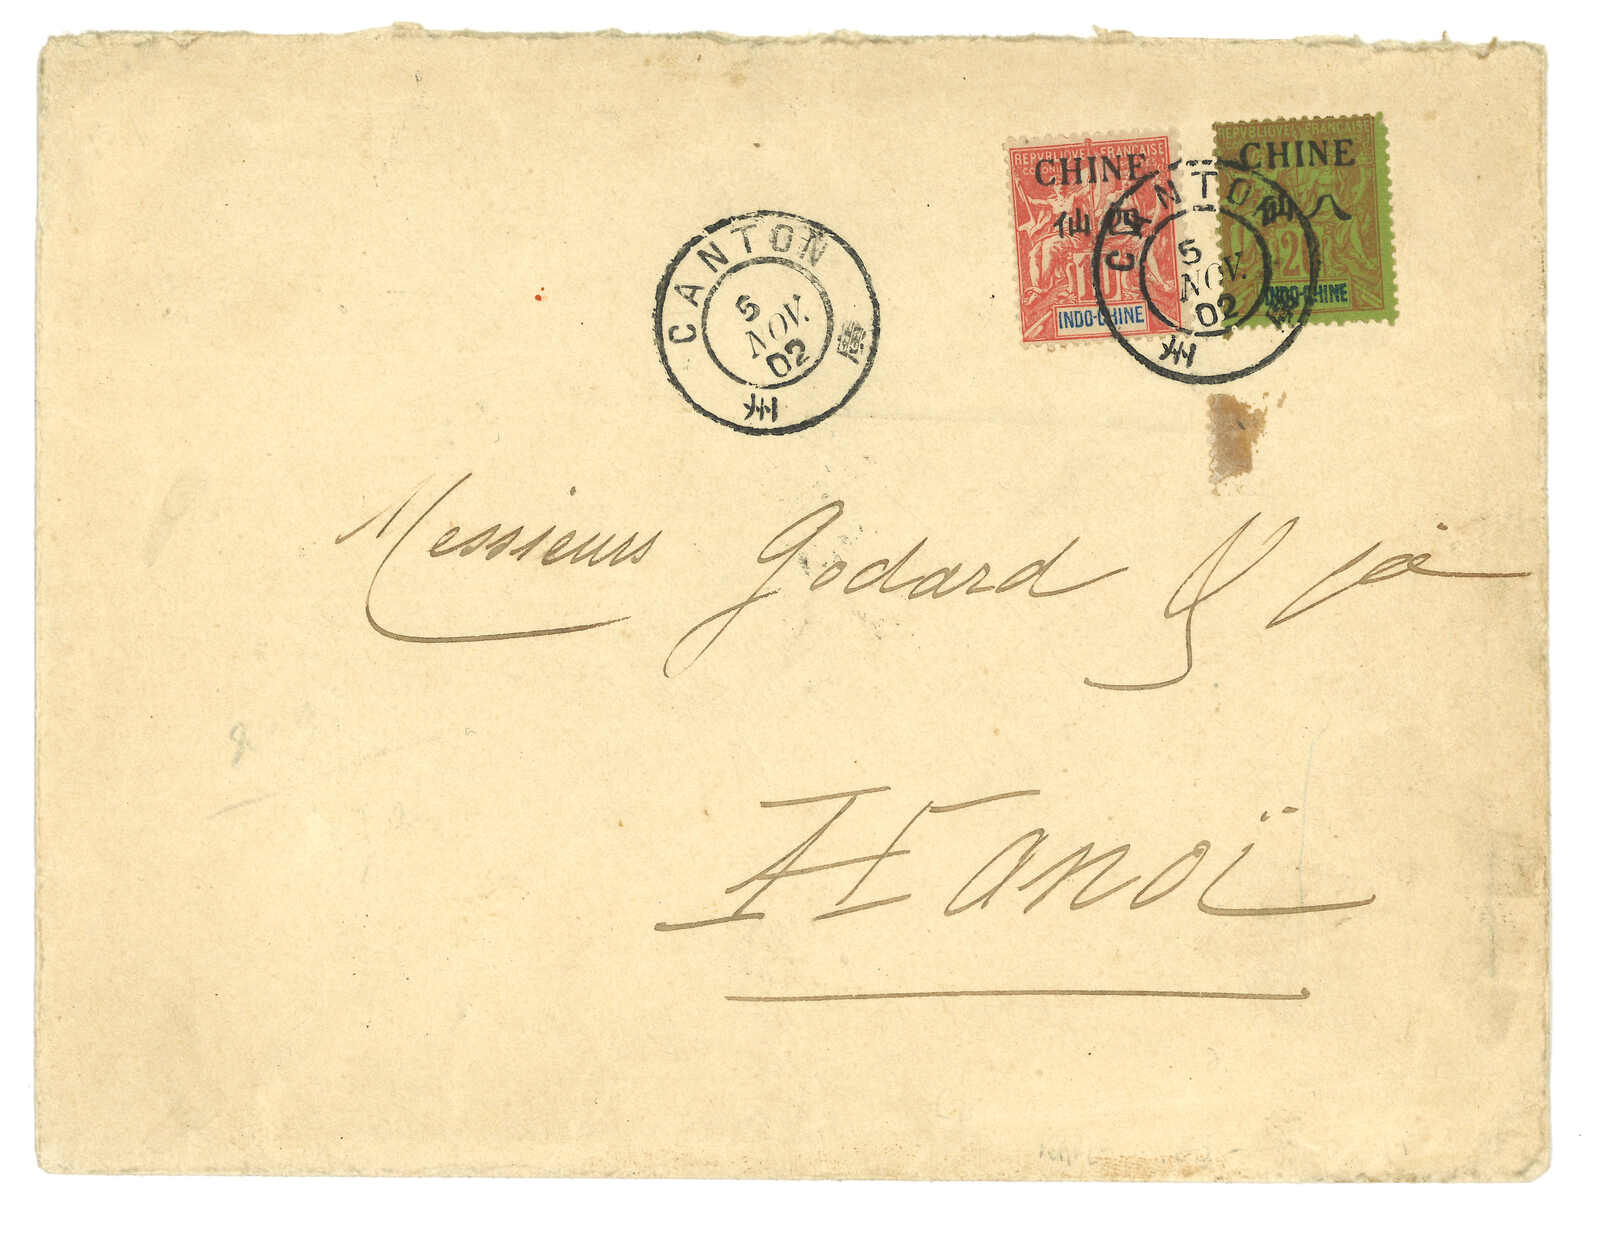 REPVBLIQVE FRANCAISE
CHINE
仙四
10
INDO-CHINE
REPVBLIQVE FRANCAISE
CHINE
仙八
20
INDO-CHINE
CANTON
5
NOV.
02
廣州
CANTON
5
NOV.
02
廣州
Messieurs Godard & Cie
Hanoï